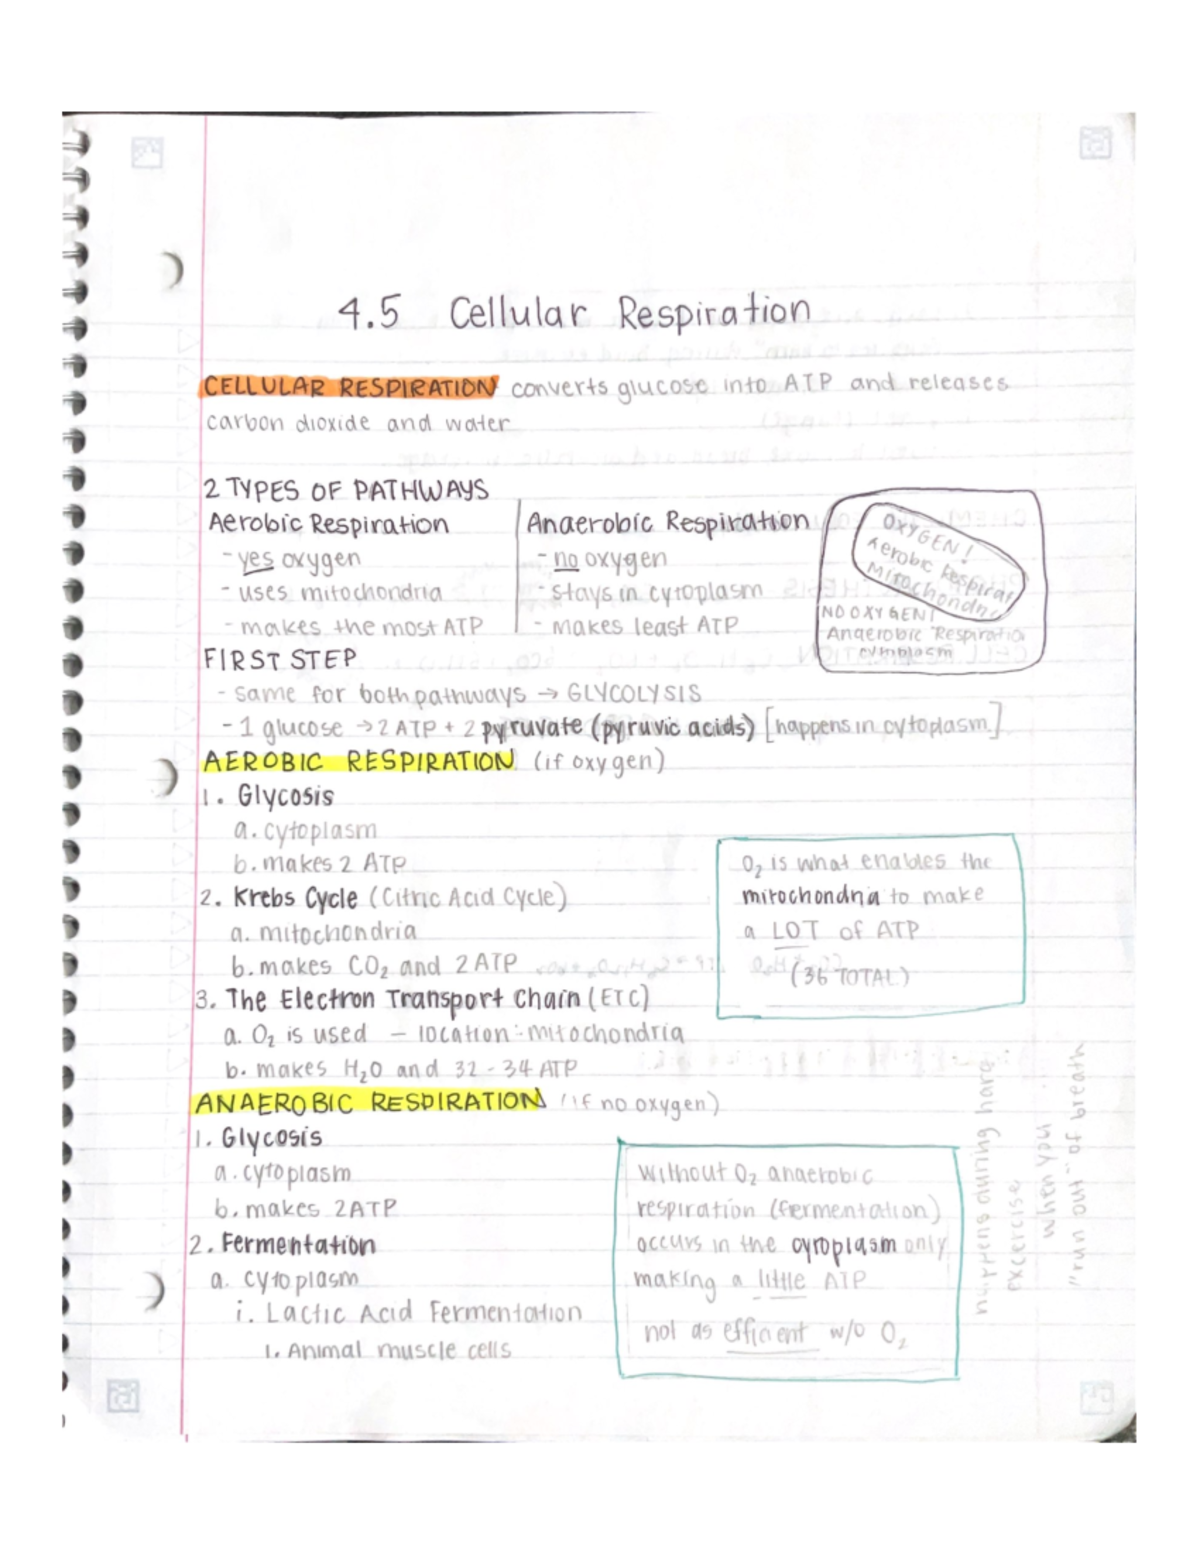 4.5 Cellular Respiration
CELLULAR RESPIRATION converts glucose into ATP and releases
carbon dioxide and water
2 TYPES OF PATHWAYS
Aerobic Respiration
- yes oxygen
- uses mitochondria
- makes the most ATP
Anaerobic Respiration
- no oxygen
- stays in cytoplasm
- makes least ATP
OXYGEN!
Aerobic Respirat
Mitochondria
NO OXYGEN!
Anaerobic Respiratio
cytoplasm
FIRST STEP
- same for both pathways → GLYCOLYSIS
- 1 glucose → 2 ATP + 2 pyruvate (pyruvic acids) [happens in cytoplasm.]
AEROBIC RESPIRATION (if oxygen)
1. Glycosis
a. cytoplasm
b. makes 2 ATP
2. Krebs Cycle (Citric Acid Cycle)
a. mitochondria
b. makes CO₂ and 2 ATP
3. The Electron Transport Chain (ETC)
a. O₂ is used - location: mitochondria
b. makes H₂O and 32 - 34 ATP
O₂ is what enables the
mitochondria to make
a LOT of ATP
(36 TOTAL)
ANAEROBIC RESPIRATION (if no oxygen)
1. Glycosis
a. cytoplasm
b. makes 2 ATP
2. Fermentation
a. cytoplasm
i. Lactic Acid Fermentation
1. Animal muscle cells
without O₂ anaerobic
respiration (fermentation)
occurs in the cyroplasm only
making a little ATP
not as efficient w/o O₂
happens during hard
excercise
when you
"run out" of breath